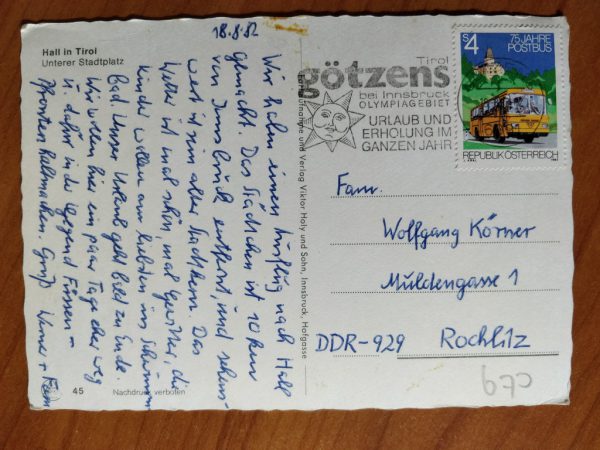 Hall in Tirol
Unterer Stadtplatz
18.8.82
Wir haben einen Ausflug nach Hall
gemacht. Das Städtchen ist 10 km
von Innsbruck entfernt, und sehens-
wert ist sein alter Stadtkern. Das
Wetter ist mal schön, mal Gewitter, die
Kinder wollen am liebsten ins Schwimm
bad. Unser Urlaub geht bald zu Ende.
Wir wollen hier ein paar Tage eher weg
u. dafür in der Gegend Füssen –
Pfronten haltmachen. Gruß Werner + Fam
45
Nachdruck verboten
Aufnahme und Verlag Viktor Holy und Sohn, Innsbruck, Hofgasse
Tirol
götzens
bei Innsbruck
OLYMPIAGEBIET
URLAUB UND
ERHOLUNG IM
GANZEN JAHR
S4
75 JAHRE
POSTBUS
REPUBLIK ÖSTERREICH
Fam.
Wolfgang Körner
Muldengasse 1
DDR-929 Rochlitz